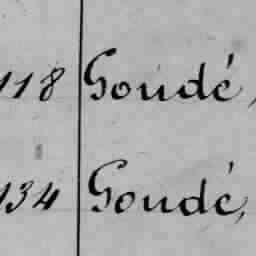 118 Goudé,
134 Goudé,